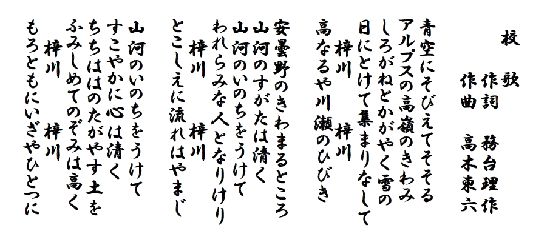 校歌
作詞 務台理作
作曲 高木東六
青空にそびえてそそる
アルプスの高嶺のきわみ
しろがねとかがやく雪の
日にとけて集まりなして
梓川 梓川
高なるや川瀬のひびき
安曇野のきわまるところ
山河のすがたは清く
山河のいのちをうけて
われらみな人となりけり
梓川 梓川
とこしえに流れはやまじ
山河のいのちをうけて
すこやかに心は清く
ちちははのたがやす土を
ふみしめてのぞみは高く
梓川 梓川
もろともにいざやひとつに